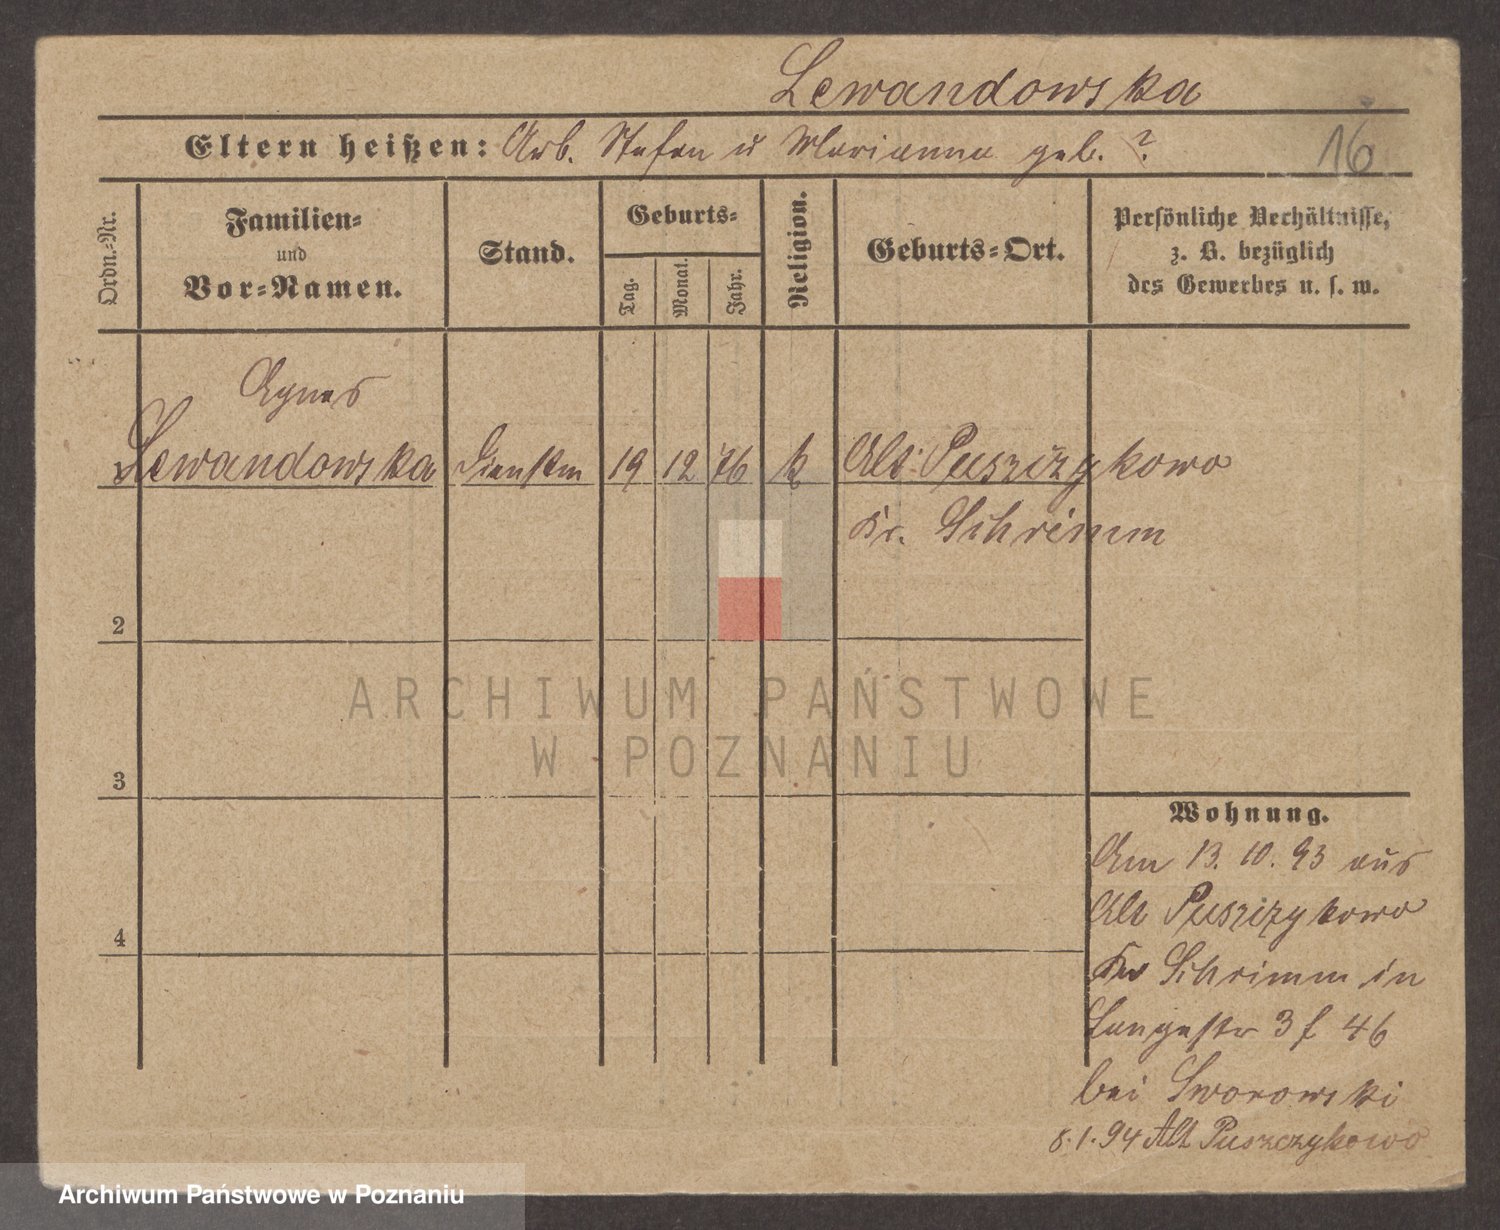 Lewandowska
Eltern heißen: Arb. Stefan u Marianna geb. ?
16
Ordn.-Nr.
Familien-
und
Vor-Namen.
Stand.
Geburts-
Tag.
Monat.
Jahr.
Religion.
Geburts-Ort.
Persönliche Verhältnisse,
z. B. bezüglich
des Gewerbes u. s. w.
Agnes
Lewandowska Dienstm 19 12 76 k Alt Puszczykowo
Kr. Schrimm
2
3
4
ARCHIWUM PAŃSTWOWE
W POZNANIU
Wohnung.
Am 13. 10. 93 aus
Alt Puszczykowo
Kr Schrimm in
Langestr 3 f 46
bei Sworowski
8.1.94 Alt Puszczykowo
Archiwum Państwowe w Poznaniu